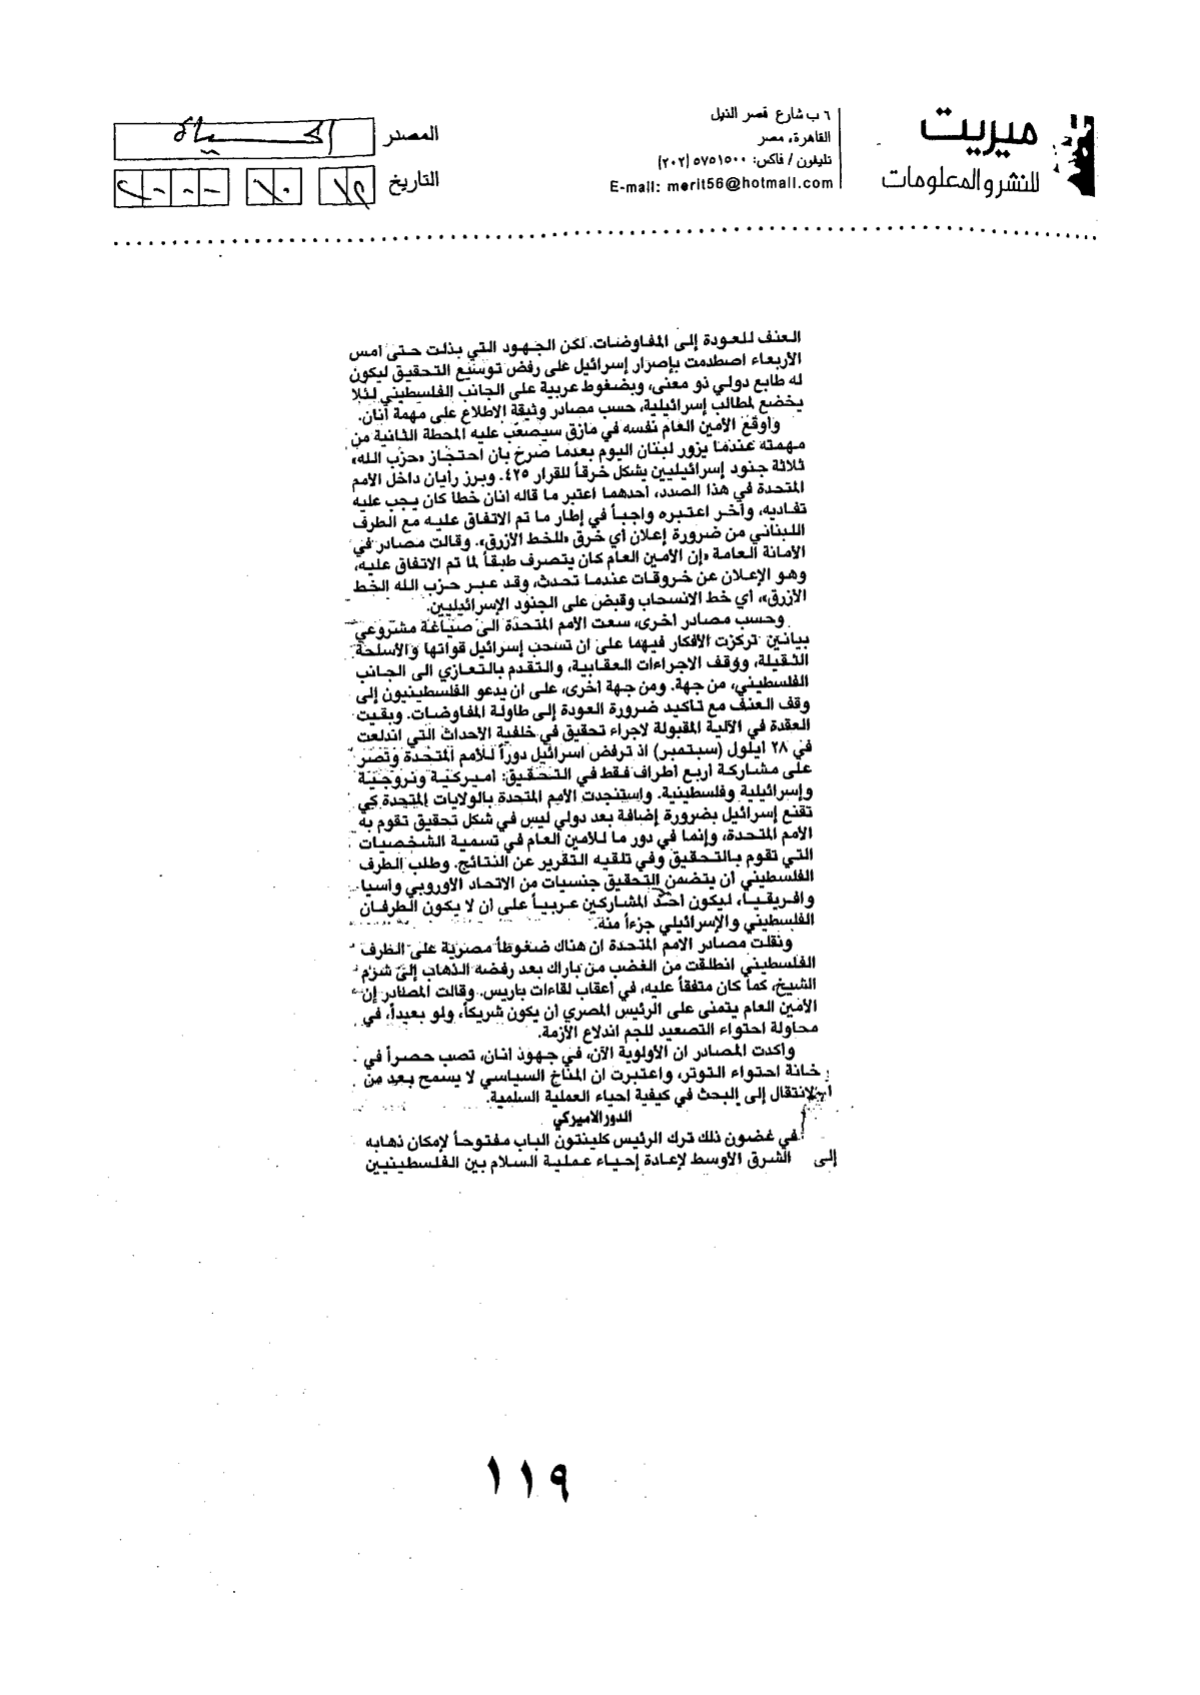 ميريت
للنشر والمعلومات
٦ ب شارع قصر النيل
القاهرة، مصر
تليفون / فاكس: ٥٧٥١٥٠٠ (٢٠٢)
E-mail: merit56@hotmail.com
المصدر الحياة
التاريخ ١٢ ١٠ ٢٠٠٠
العنف للعودة إلى المفاوضات. لكن الجهود التي بذلت حتى امس
الأربعاء اصطدمت بإصرار إسرائيل على رفض توسيع التحقيق ليكون
له طابع دولي ذو معنى، وبضغوط عربية على الجانب الفلسطيني لئلا
يخضع لمطالب إسرائيلية، حسب مصادر وثيقة الإطلاع على مهمة أنان.
وأوقع الأمين العام نفسه في مازق سيصعّب عليه المحطة الثانية من
مهمته عندما يزور لبنان اليوم بعدما صرح بان احتجاز «حزب الله»
ثلاثة جنود إسرائيليين يشكل خرقاً للقرار ٤٢٥. وبرز رأيان داخل الامم
المتحدة في هذا الصدد، احدهما اعتبر ما قاله انان خطا كان يجب عليه
تفاديه، وآخر اعتبره واجباً في إطار ما تم الاتفاق عليه مع الطرف
اللبناني من ضرورة إعلان أي خرق «للخط الأزرق». وقالت مصادر في
الأمانة العامة «إن الأمين العام كان يتصرف طبقاً لما تم الاتفاق عليه،
وهو الإعلان عن خروقات عندما تحدث، وقد عبر حزب الله الخط
الأزرق»، أي خط الانسحاب وقبض على الجنود الإسرائيليين.
وحسب مصادر اخرى، سعت الأمم المتحدة الى صياغة مشروعي
بيانين تركزت الأفكار فيهما على ان تسحب إسرائيل قواتها والأسلحة
الثقيلة، ووقف الاجراءات العقابية، والتقدم بالتعازي الى الجانب
الفلسطيني، من جهة. ومن جهة أخرى، على ان يدعو الفلسطينيون إلى
وقف العنف مع تاكيد ضرورة العودة إلى طاولة المفاوضات. وبقيت
العقدة في الآلية المقبولة لاجراء تحقيق في خلفية الاحداث التي اندلعت
في ٢٨ ايلول (سبتمبر) اذ ترفض اسرائيل دوراً للأمم المتحدة وتصر
على مشاركة أربع أطراف فقط في التحقيق: أميركية ونروجية
وإسرائيلية وفلسطينية. واستنجدت الأمم المتحدة بالولايات المتحدة كي
تقنع إسرائيل بضرورة إضافة بعد دولي ليس في شكل تحقيق تقوم به
الأمم المتحدة، وإنما في دور ما للأمين العام في تسمية الشخصيات
التي تقوم بالتحقيق وفي تلقيه التقرير عن النتائج. وطلب الطرف
الفلسطيني أن يتضمن التحقيق جنسيات من الاتحاد الأوروبي وآسيا
وافريقيا، ليكون أحد المشاركين عربياً على ان لا يكون الطرفان
الفلسطيني والإسرائيلي جزءاً منه.
ونقلت مصادر الامم المتحدة ان هناك ضغوطاً مصرية على الطرف
الفلسطيني انطلقت من الغضب من باراك بعد رفضه الذهاب إلى شرم
الشيخ، كما كان متفقاً عليه، في أعقاب لقاءات باريس. وقالت المصادر إن
الأمين العام يتمنى على الرئيس المصري أن يكون شريكاً، ولو بعيداً، في
محاولة احتواء التصعيد للجم اندلاع الأزمة.
واكدت المصادر ان الأولوية الآن، في جهود انان، تصب حصراً في
خانة احتواء التوتر، واعتبرت ان المناخ السياسي لا يسمح بعد من
الانتقال إلى البحث في كيفية احياء العملية السلمية.
الدور الاميركي
في غضون ذلك ترك الرئيس كلينتون الباب مفتوحاً لإمكان ذهابه
إلى الشرق الأوسط لإعادة إحياء عملية السلام بين الفلسطينيين
١١٩